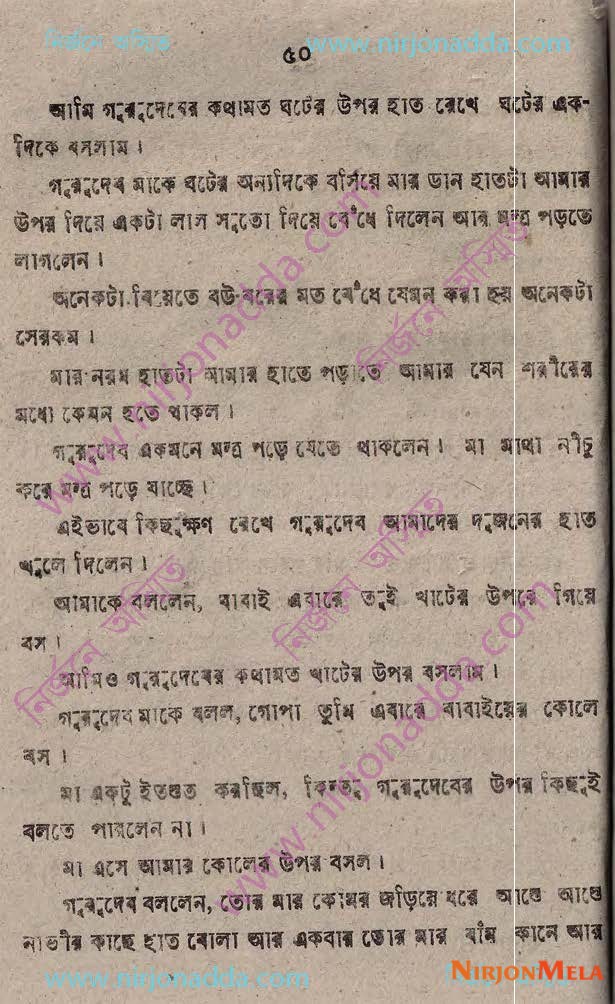 নির্জনে অস্মিত www.nirjonadda.com
৫০
আমি গুরুদেবের কথামত ঘটের উপর হাত রেখে ঘটের এক-
দিকে বসলাম।
গুরুদেব মাকে ঘটের অন্যদিকে বসিয়ে মার ডান হাতটা আমার
উপর দিয়ে একটা লাল সুতো দিয়ে বেঁধে দিলেন আর মন্ত্র পড়তে
লাগলেন।
অনেকটা বিয়েতে বউ-বরের মত বেঁধে যেমন করা হয় অনেকটা
সেরকম।
মার নরম হাতটা আমার হাতে পড়াতে আমার যেন শরীরের
মধ্যে কেমন হতে থাকল।
গুরুদেব একমনে মন্ত্র পড়ে যেতে থাকলেন। মা মাথা নীচু
করে মন্ত্র পড়ে যাচ্ছে।
এইভাবে কিছুক্ষণ রেখে গুরুদেব আমাদের দুজনের হাত
খুলে দিলেন।
আমাকে বললেন, বাবাই এবারে তুই খাটের উপরে গিয়ে
বস।
আমিও গুরুদেবের কথামত খাটের উপর বসলাম।
গুরুদেব মাকে বলল, গোপা তুমি এবারে বাবাইয়ের কোলে
বস।
মা একটু ইতস্তত করছিল, কিন্তু গুরুদেবের উপর কিছুই
বলতে পারলেন না।
মা এসে আমার কোলের উপর বসল।
গুরুদেব বললেন, তোর মার কোমর জড়িয়ে ধরে আস্তে আস্তে
নাভীর কাছে হাত বোলা আর একবার তোর মার বাঁম কানে আর
www.nirjonadda.com
NIRJONMELA
www.nirjonadda.com
নির্জনে অস্মিত
www.nirjonadda.com
নির্জনে অস্মিত
নির্জনে অস্মিত